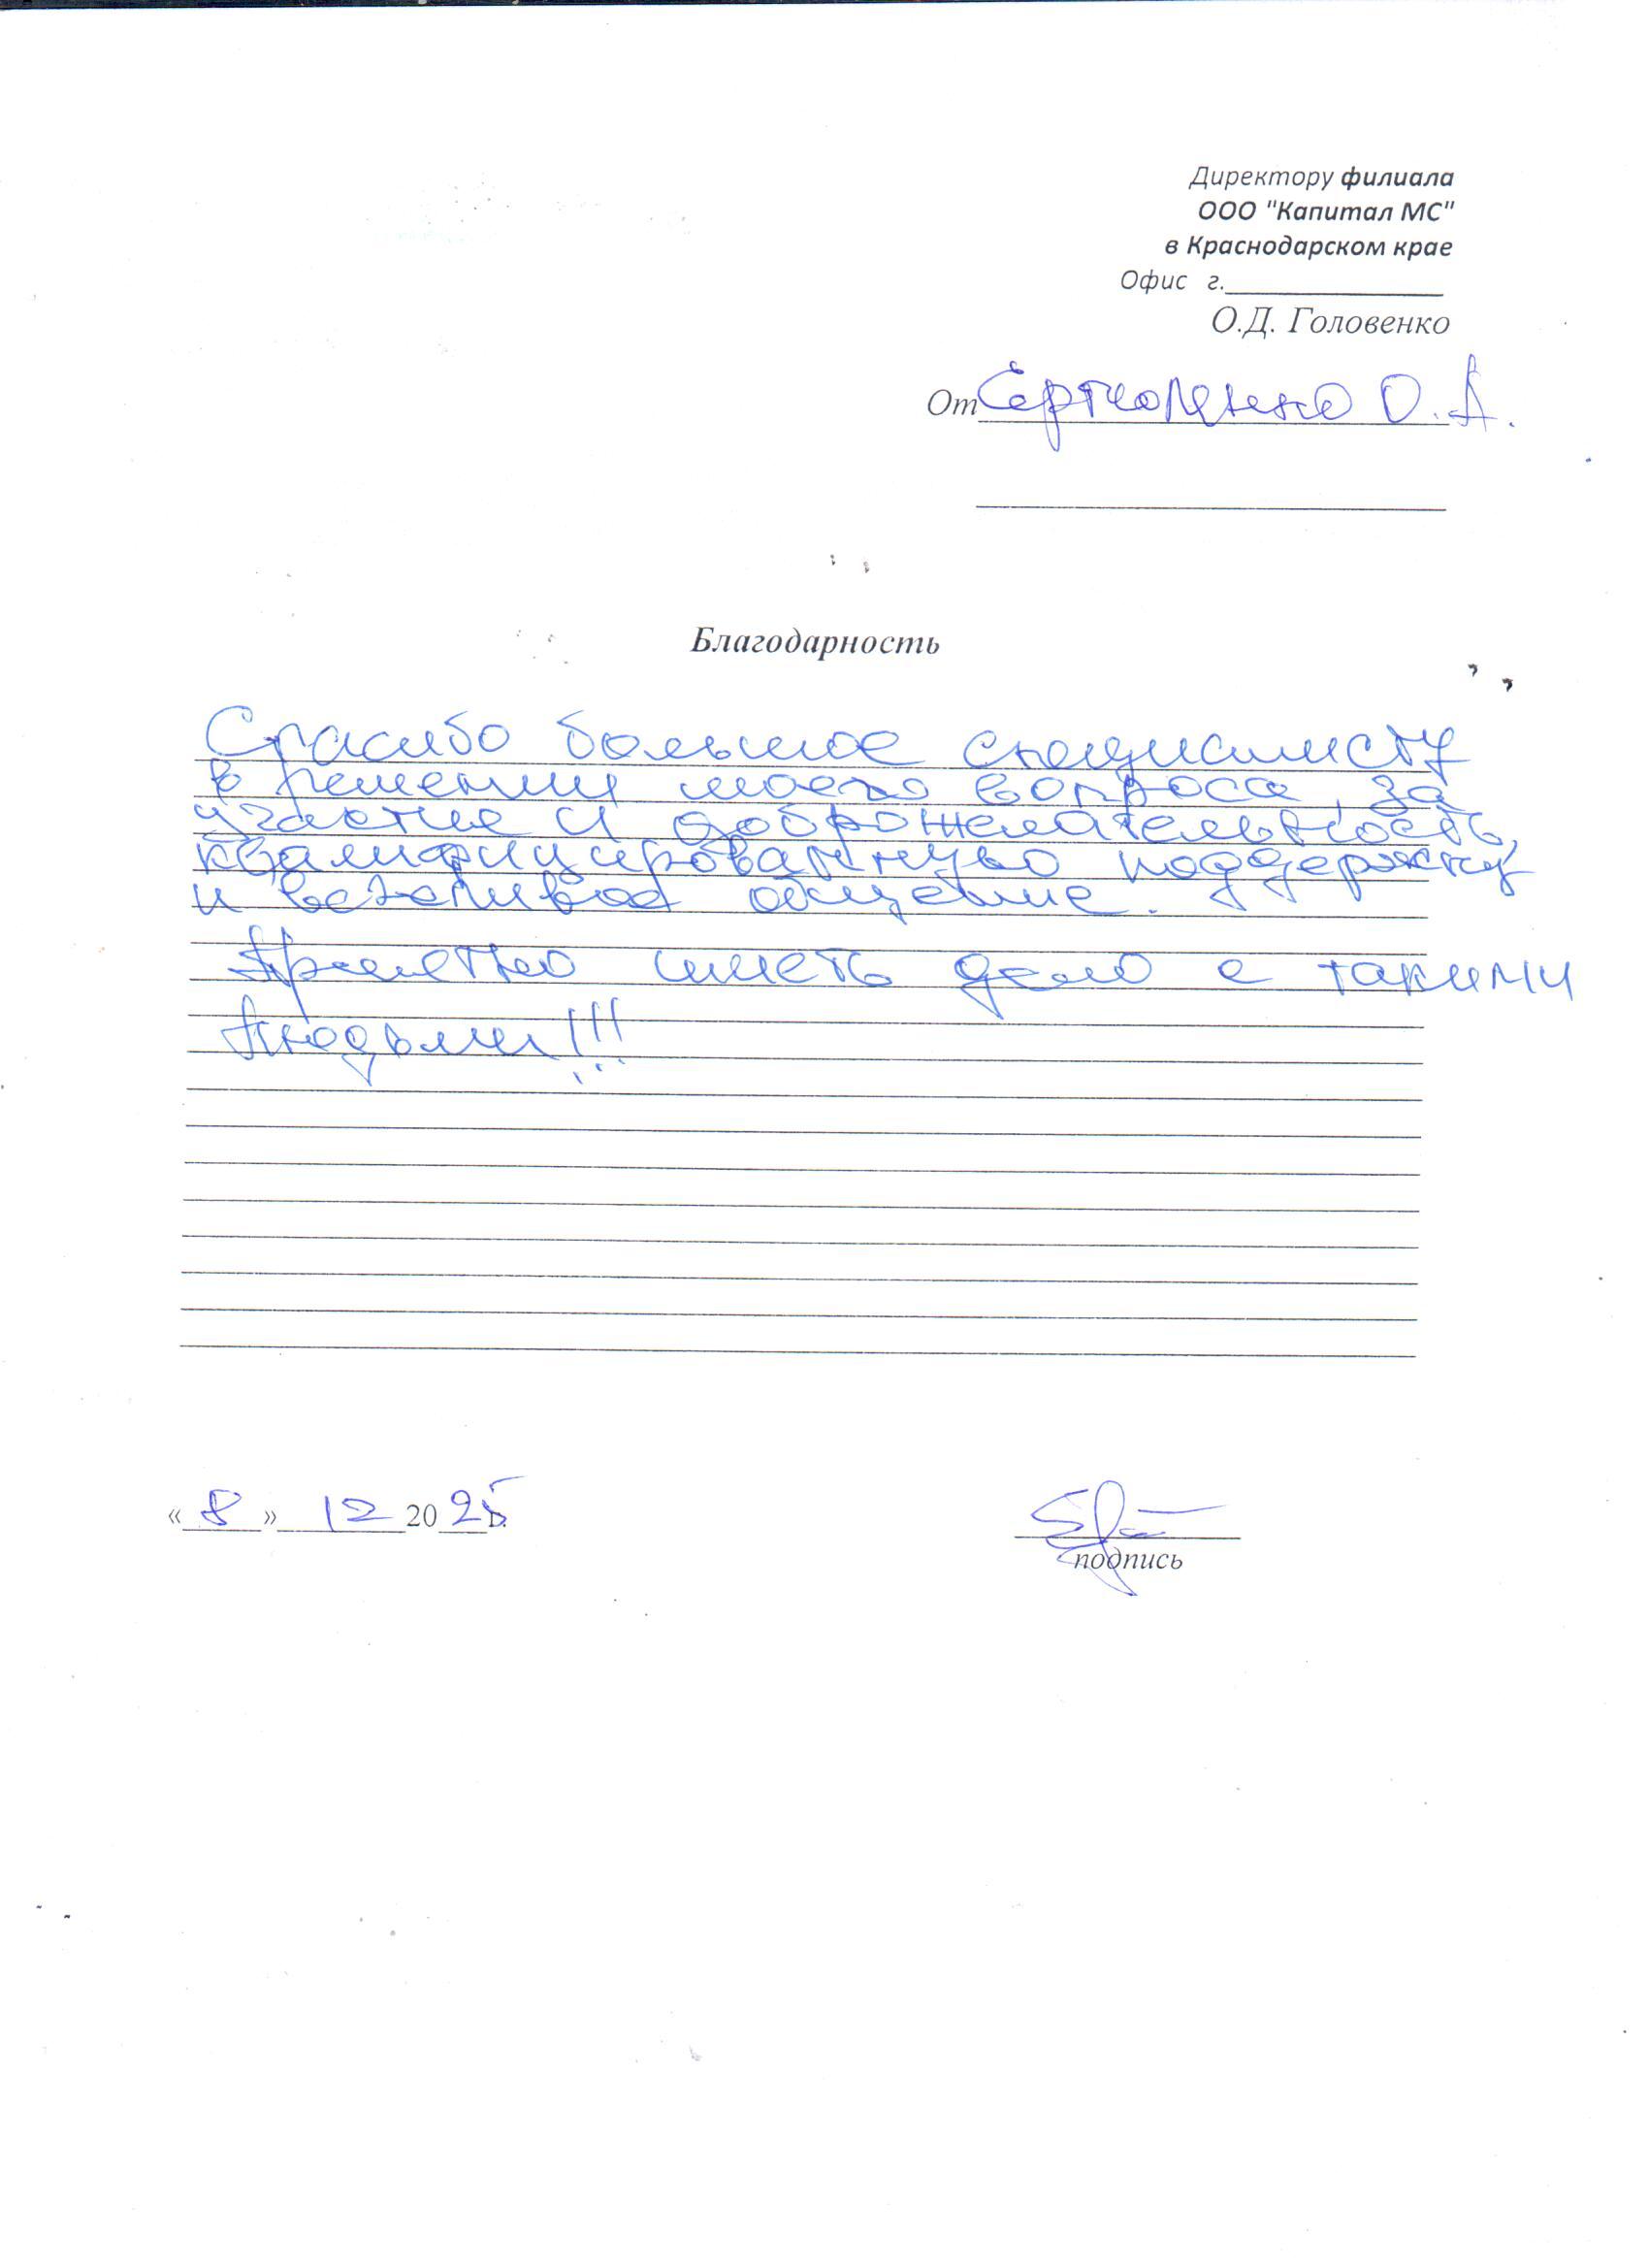 Директору филиала
ООО "Капитал МС"
в Краснодарском крае
Офис г.
О.Д. Головенко
От О.А.
Благодарность
Спасибо большое специалисту
в решении моего вопроса, за
участие и доброжелательность,
квалифицированную поддержку
и вежливое общение.
Приятно иметь дело с такими
людьми!!!
«8» 12 2025 г.
подпись